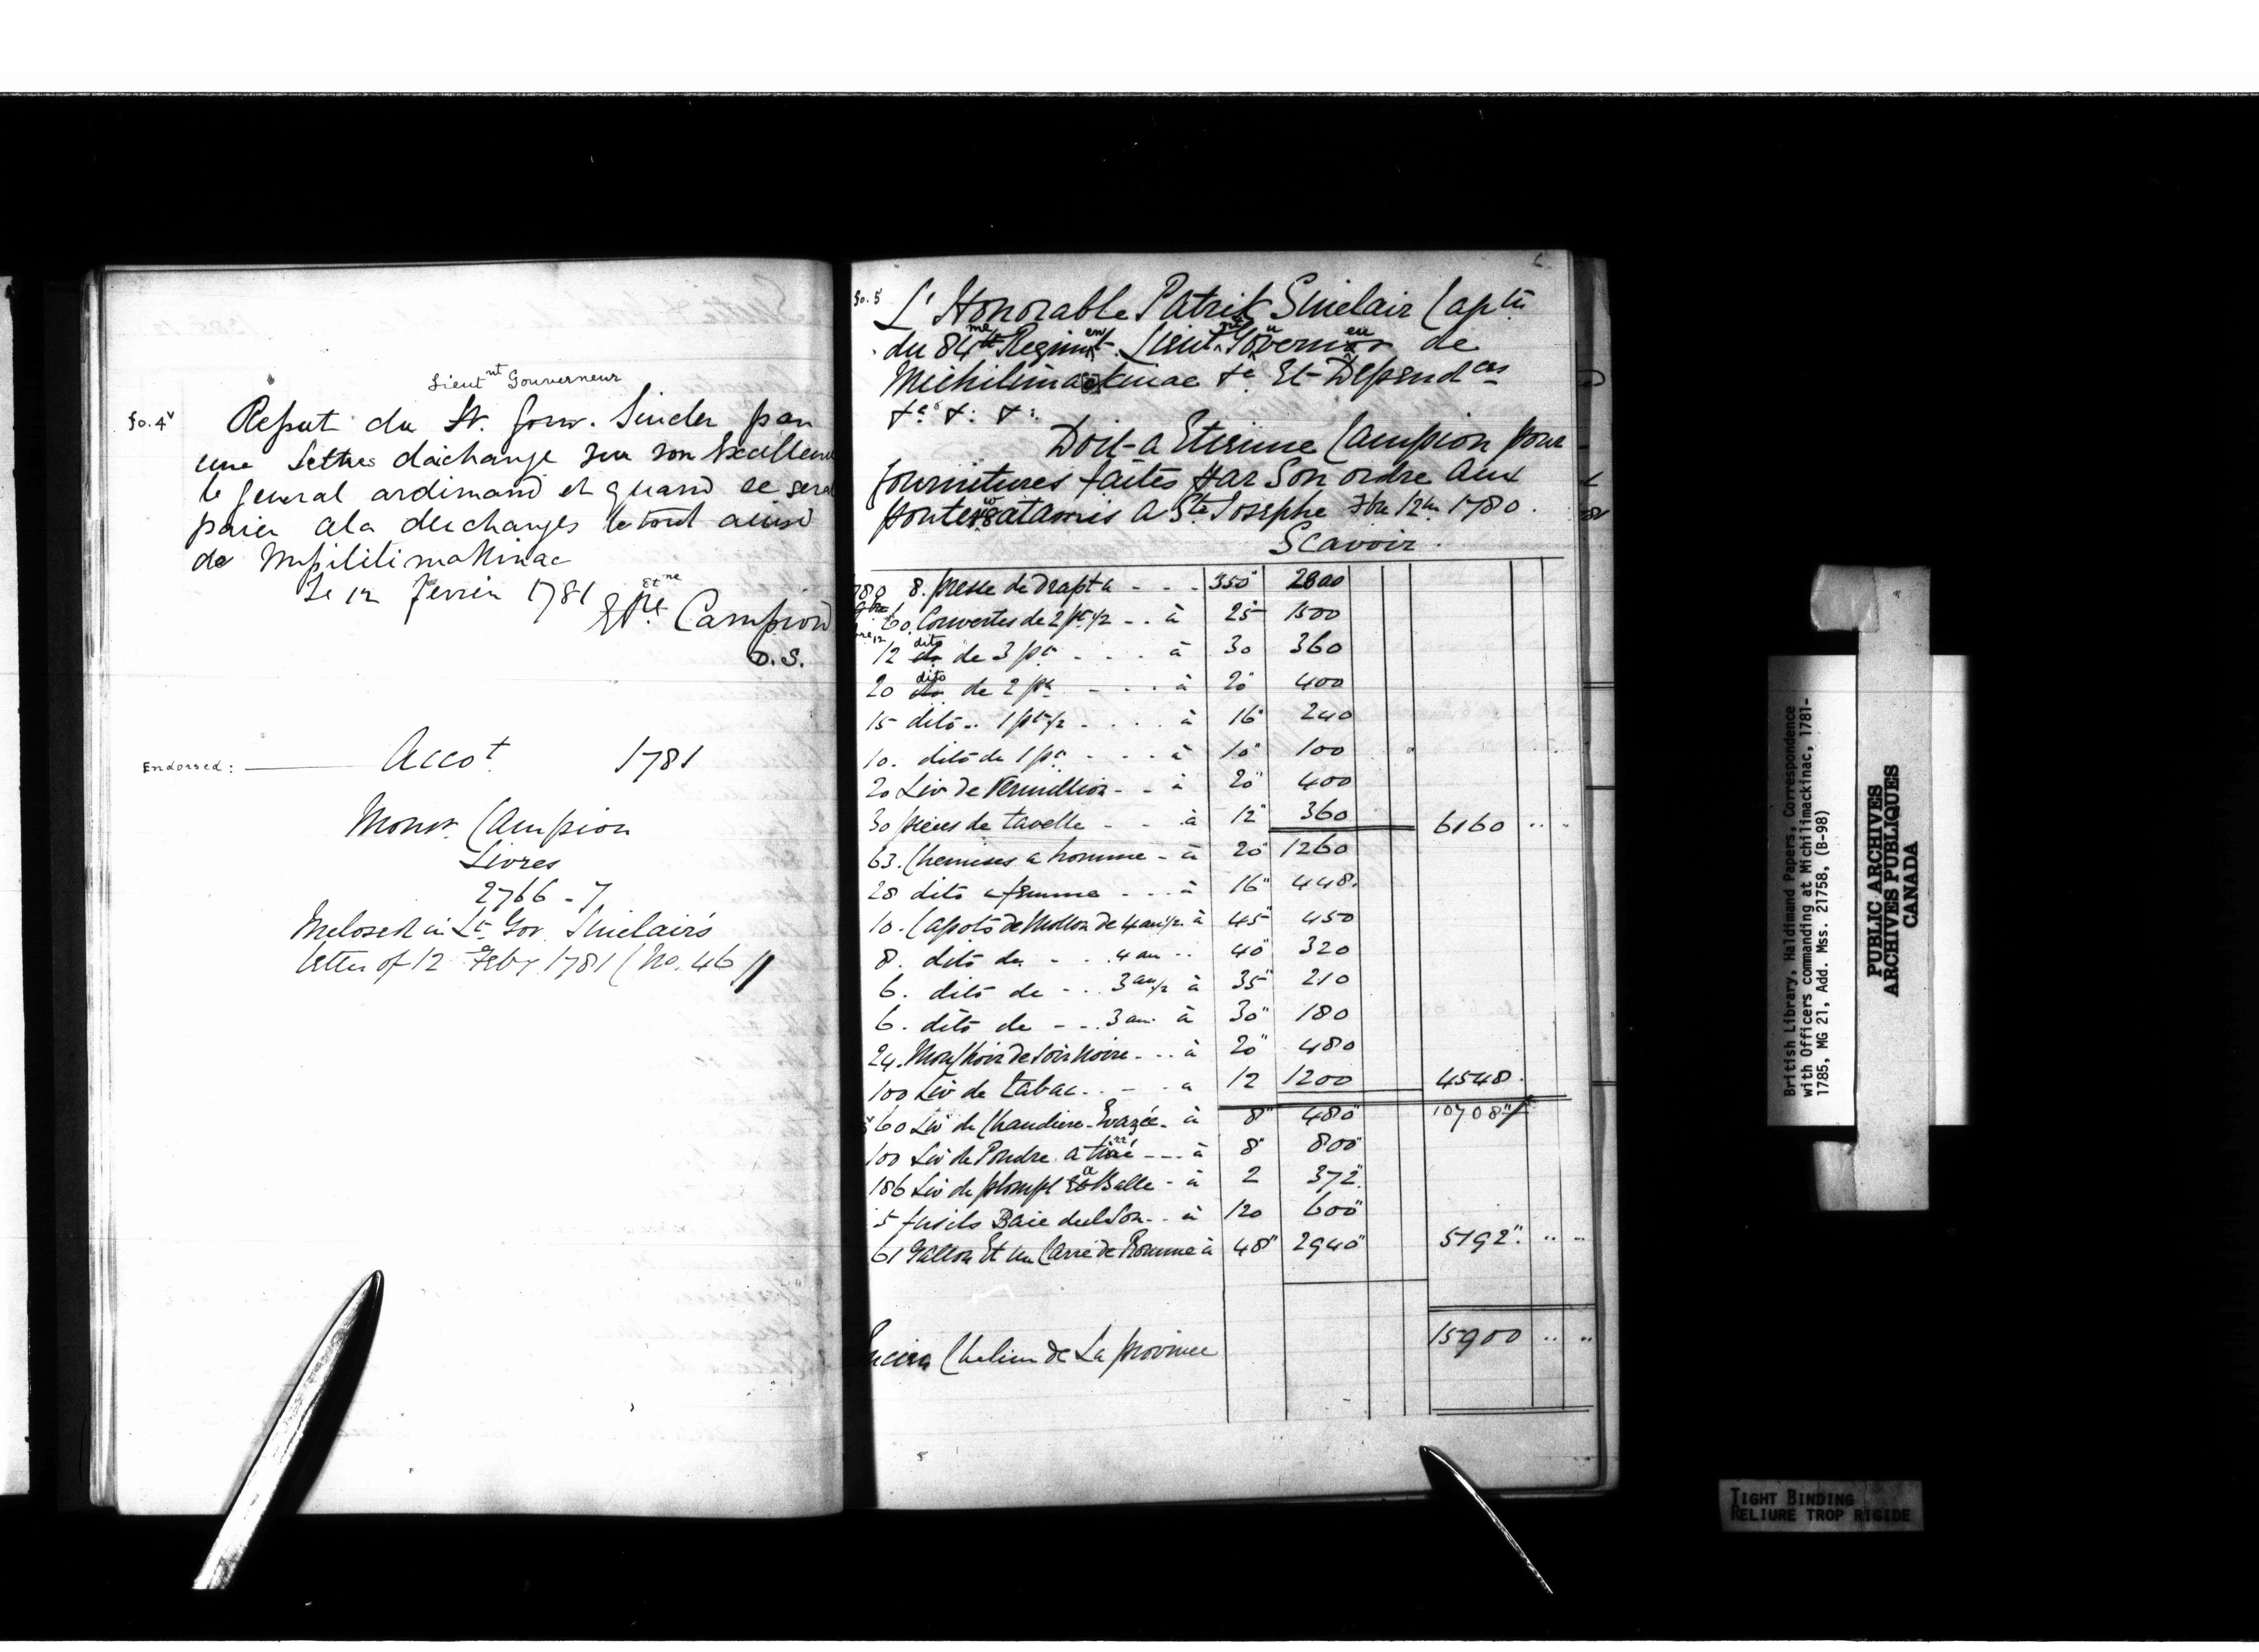 Lieutnt Gouverneur
fo. 4v Reput du Lt. Gouv. Sincler par
une Lettres daichange sur son Excellence
le general ardimand et quand ce sera
paier ala deichanges le tout ainsi
de
Le 12 fevrier 1781 Etne
Campion
D.S.
Endorsed: Accot 1781
Monsr. Campion
Livres
2766 - 7
Inclosed in Lt. Gov. Sinclair's
letter of 12 Feby 1781 (No. 46)
6
fo. 5 L'Honorable Patrik Sinclair Captn
du 84me Regiment Lieutnt Gouverneur de
Michilimackinac &c Et Dependces
&c &: &:
Doit a Etienne Campion pour
fournitures faites Par Son ordre Aux
Pontewatamis A Ste Josephe 7bre 12me 1780.
Scavoir.
1780 8. piesse de Drapt a - - - 350" 2800
60. Couvertes de 2 pts 1/2 - - à 25 1500
12 dito de 3 pts - - - à 30 360
20 dito de 2 pts - - - à 20 400
15 dito - 1 pts 1/2 - - - à 16" 240
10. dito de 1 pt - - - à 10" 100
20 Liv de Vermillion - - à 20" 400
30 pieces de tavelle - - à 12" 360 6160 " "
63. Chemises a homme - à 20" 1260
28 dito a femme - - - à 16" 448.
10. Capots de Molton de 4 au 1/2 à 45" 450
8. dito de - - - 4 au - - 40" 320
6. dito de - - - 3 au 1/2 à 35" 210
6. dito de - - - 3 au. à 30" 180
24. Mouchoir de Soir Noire - - - à 20" 480
100 Liv de tabac - - - a 12 1200 4548.
60 Liv de Chaudiere Evazée - à 8" 480" 10708"
100 Liv de Poudre a tirré - - - à 8" 800"
186 Liv de plompt a Balle - à 2 372".
5 fusils Baie - - à 120 600"
61 Gallon Et un Carré de Romme à 48" 2940" 5192". " "
Chelien de La province 15900 " "
British Library, Haldimand Papers, Correspondence
with Officers commanding at Michilimackinac, 1781-
1785, MG 21, Add. Mss. 21758, (B-98)
PUBLIC ARCHIVES
ARCHIVES PUBLIQUES
CANADA
TIGHT BINDING
RELIURE TROP RIGIDE